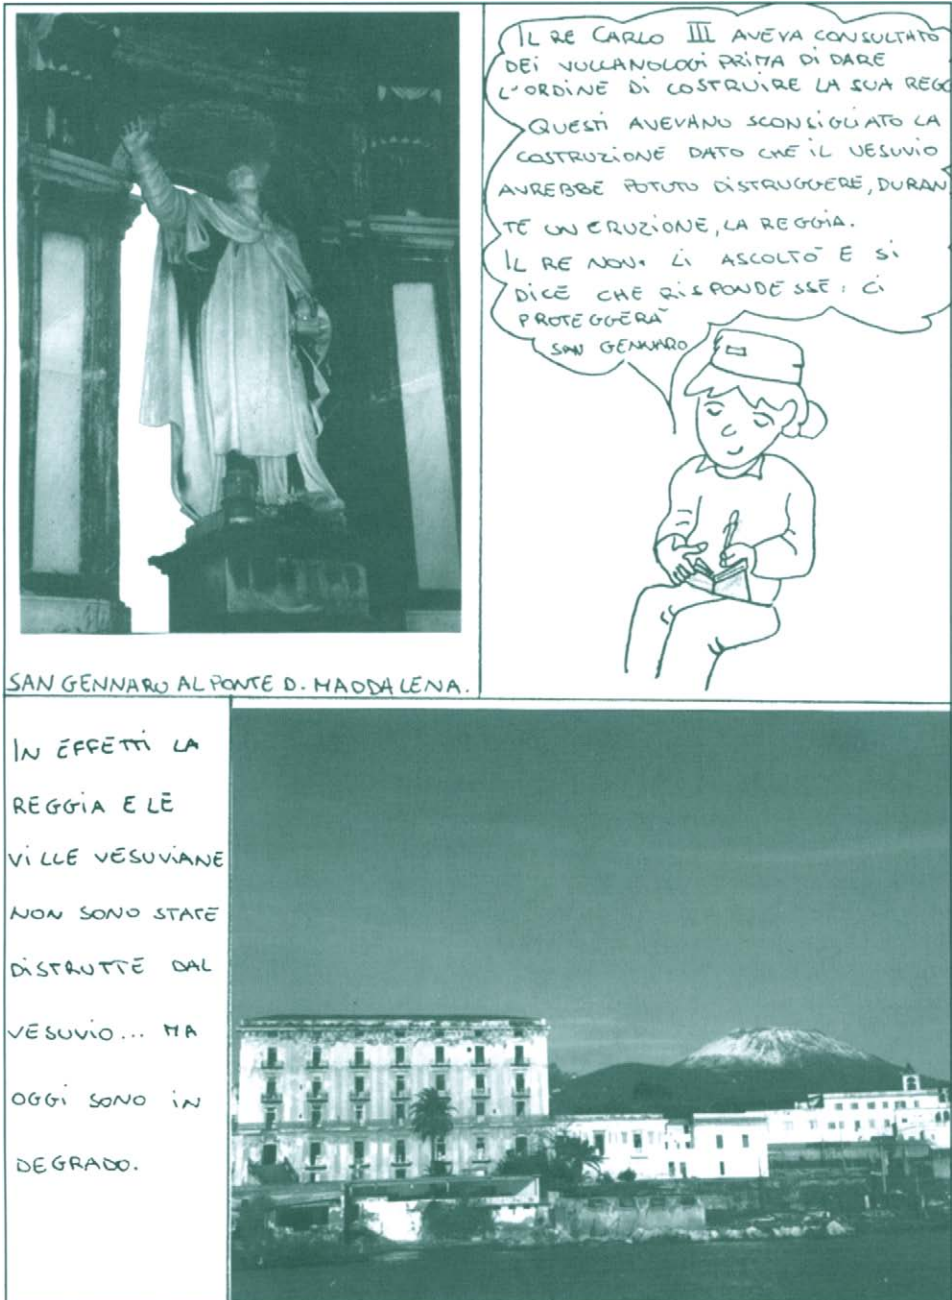 SAN GENNARO AL PONTE D. MADDALENA.
IL RE CARLO III AVEVA CONSULTATO
DEI VULCANOLOGI PRIMA DI DARE
L'ORDINE DI COSTRUIRE LA SUA REGG
QUESTI AVEVANO SCONSIGLIATO LA
COSTRUZIONE DATO CHE IL VESUVIO
AVREBBE POTUTO DISTRUGGERE, DURAN
TE UN ERUZIONE, LA REGGIA.
IL RE NON LI ASCOLTÒ E SI
DICE CHE RISPONDESSE: CI
PROTEGGERÀ
SAN GENNARO
IN EFFETTI LA
REGGIA E LE
VILLE VESUVIANE
NON SONO STATE
DISTRUTTE DAL
VESUVIO... MA
OGGI SONO IN
DEGRADO.